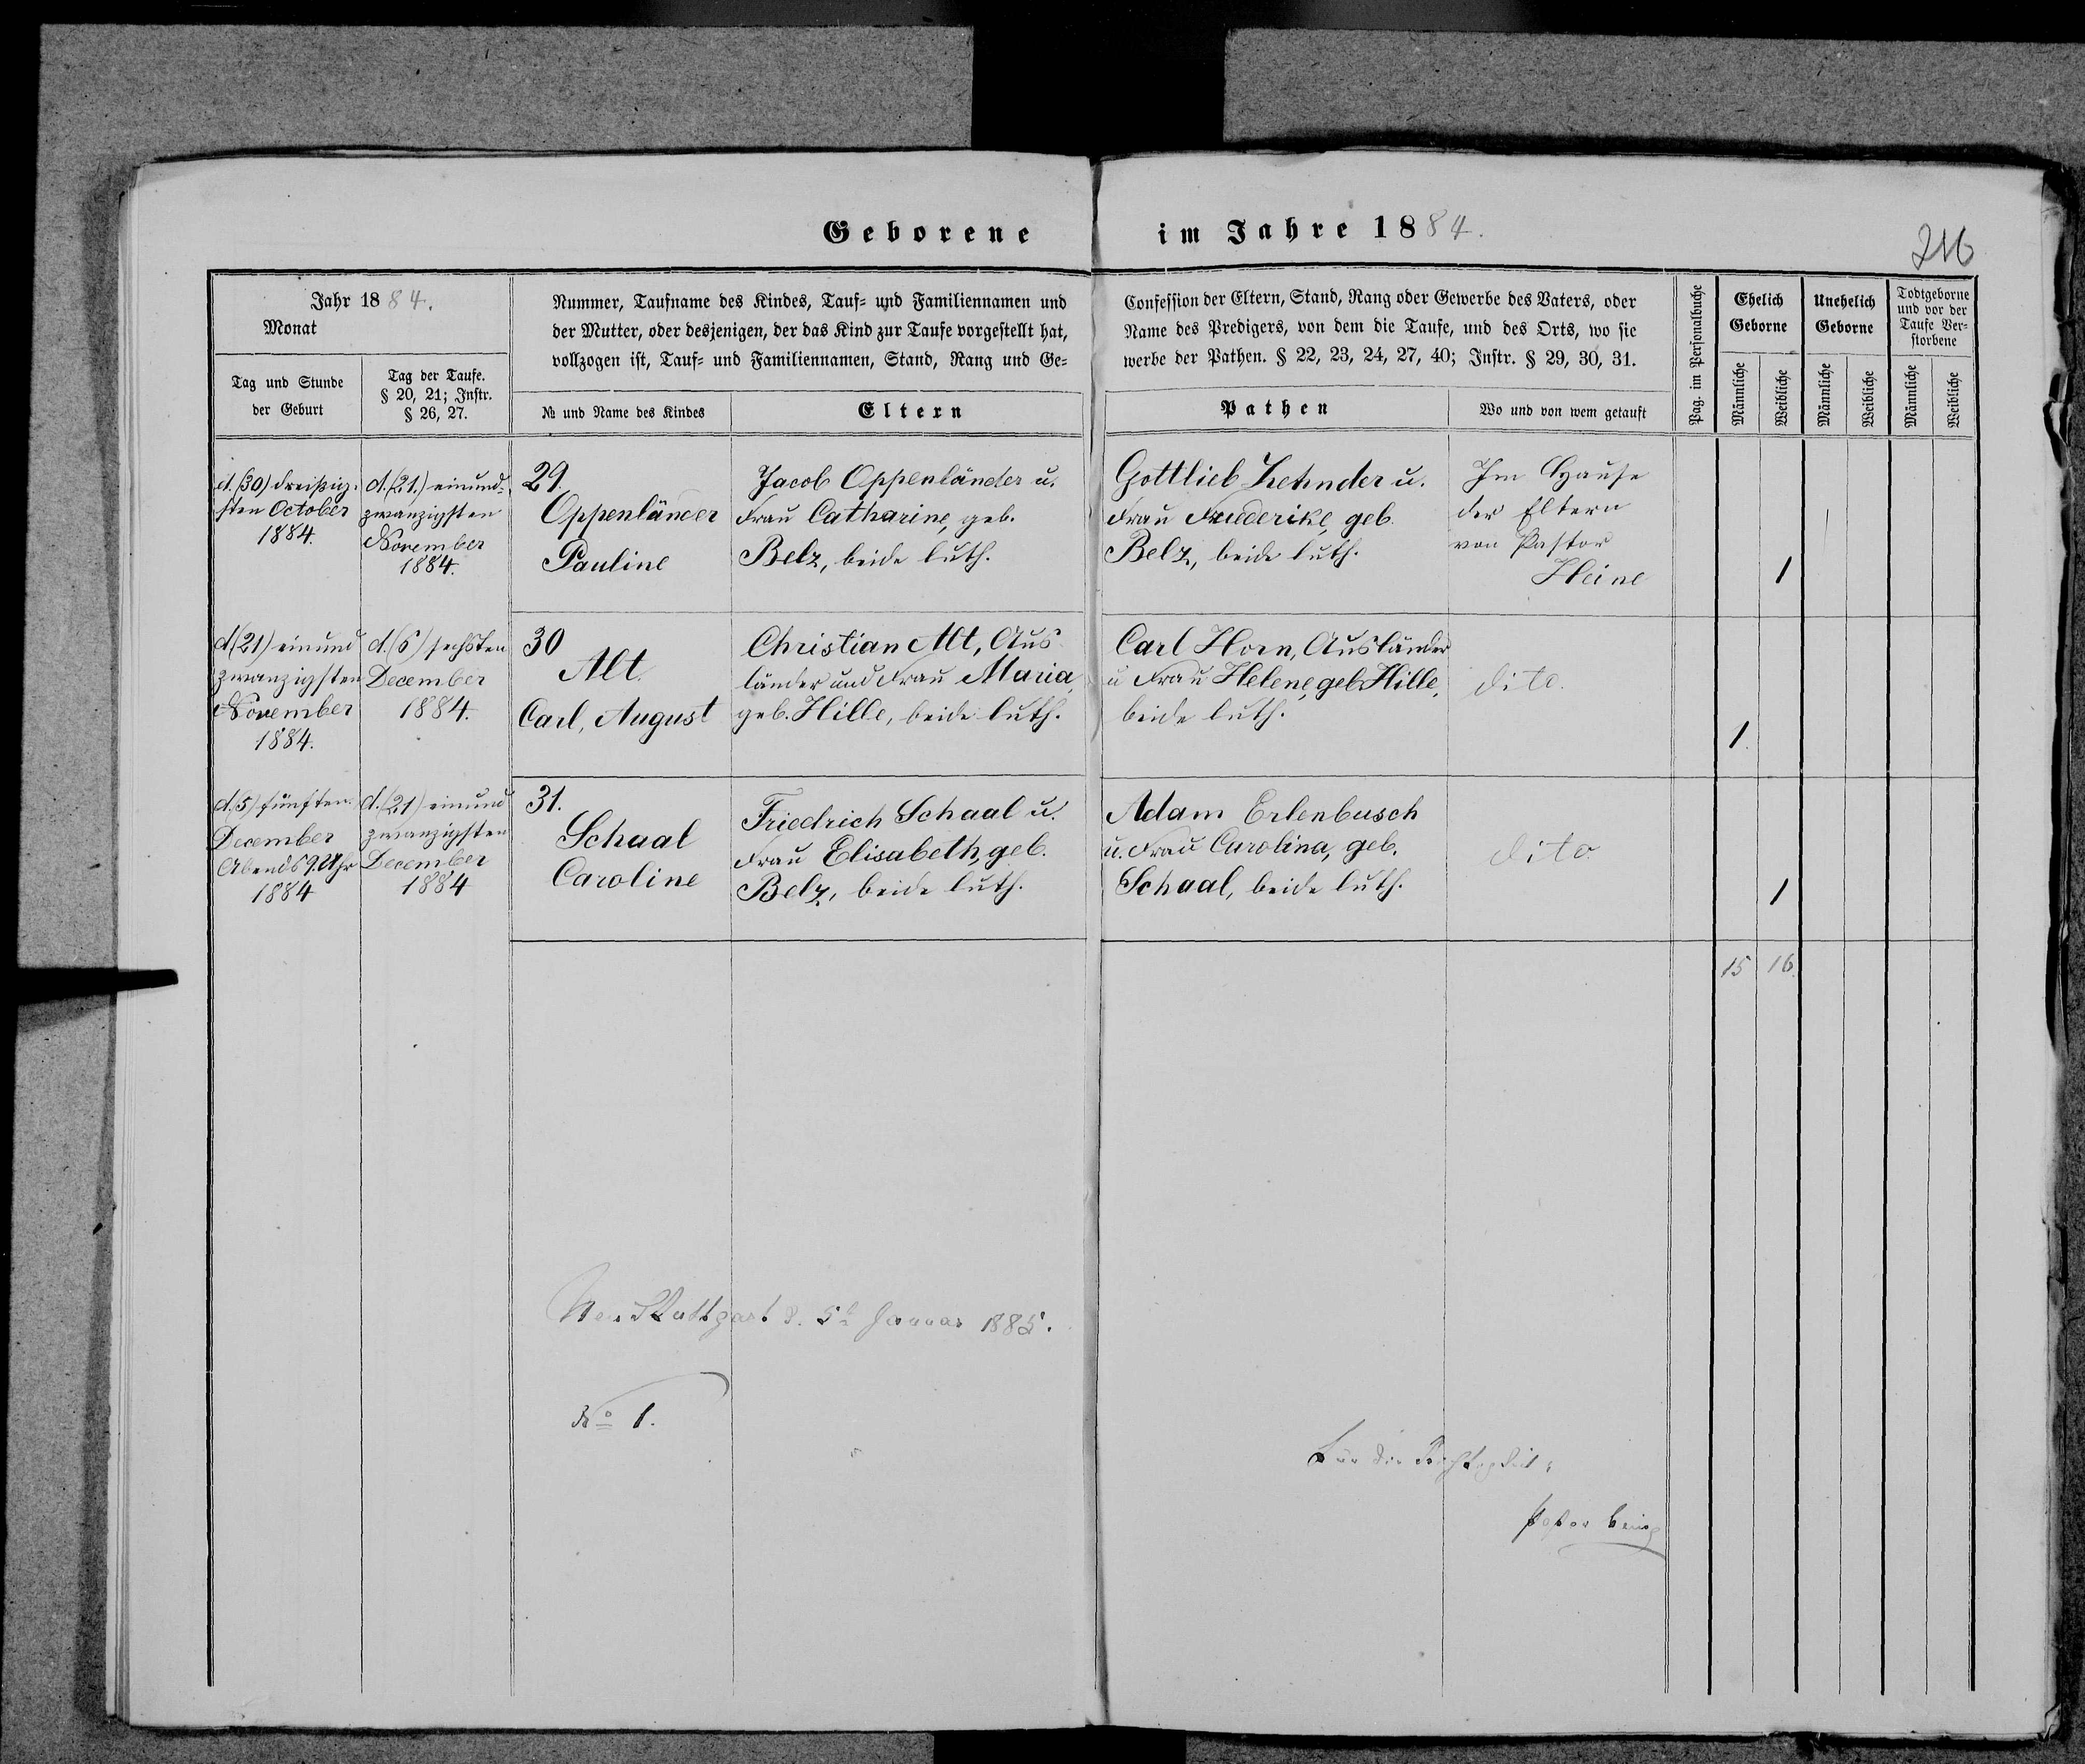 Geborene im Jahre 1884.
216
Jahr 1884.
Monat
Tag und Stunde
der Geburt
Tag der Taufe.
§ 20, 21; Instr.
§ 26, 27.
Nummer, Taufname des Kindes, Tauf- und Familiennamen und
der Mutter, oder desjenigen, der das Kind zur Taufe vorgestellt hat,
vollzogen ist, Tauf- und Familiennamen, Stand, Rang und Ge-
№ und Name des Kindes
Eltern
Confession der Eltern, Stand, Rang oder Gewerbe des Vaters, oder
Name des Predigers, von dem die Taufe, und des Orts, wo sie
werbe der Pathen. § 22, 23, 24, 27, 40; Instr. § 29, 30, 31.
Pathen
Wo und von wem getauft
Pag. im Personalbuche
Ehelich
Geborne
Männliche
Weibliche
Unehelich
Geborne
Männliche
Weibliche
Todtgeborne
und vor der
Taufe Ver-
storbene
Männliche
Weibliche
d. (30) dreißig-
sten October
1884.
d. (21.) einund-
zwanzigsten
November
1884.
29.
Oppenländer
Pauline
Jacob Oppenländer u.
Frau Catharine, geb.
Belz, beide luth.
Gottlieb Zehnder u.
Frau Friederike, geb.
Belz, beide luth.
Im Hause
der Eltern
von Pastor
Heine
1
d. (21) einund
zwanzigsten
November
1884.
d. (6) sechsten
December
1884.
30
Alt.
Carl, August
Christian Alt, Aus
länder und Frau Maria,
geb. Hille, beide luth.
Carl Horn, Ausländer
u Frau Helene, geb. Hille,
beide luth.
dito.
1.
d. (5) fünften
December
Abends 9. Uhr
1884
d. (21) einund
zwanzigsten
December
1884
31.
Schaal
Caroline
Friedrich Schaal u.
Frau Elisabeth, geb.
Belz, beide luth.
Adam Erlenbusch
u. Frau Carolina, geb.
Schaal, beide luth.
dito.
1
15 16.
Neu Stuttgart d. 5t Januar 1885.
No 1.
Für die Richtigkeit:
Pastor